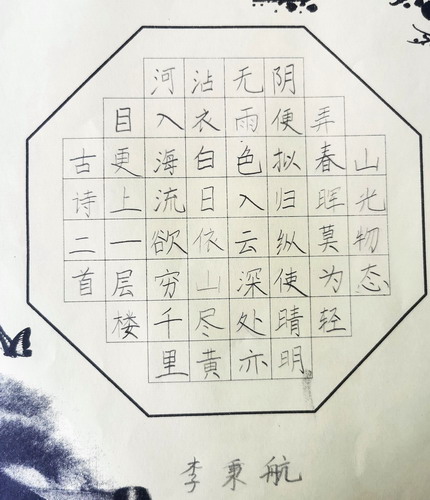 山光物态
弄春晖莫为轻
阴便拟归纵使晴明
无雨色入云深处亦
沾衣白日依山尽黄
河入海流欲穷千里
目更上一层楼
古诗二首
李秉航